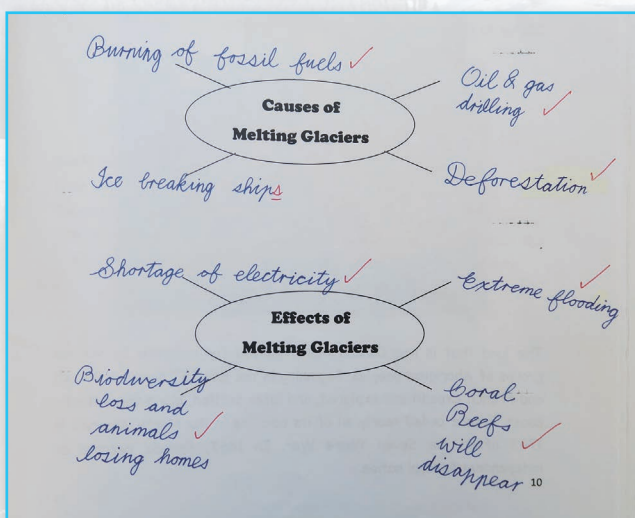 Burning of fossil fuels
Oil & gas
drilling
Causes of
Melting Glaciers
Ice breaking ships
Deforestation
Shortage of electricity
Extreme flooding
Effects of
Melting Glaciers
Biodiversity
loss and
animals
losing homes
Coral
Reefs
will
disappear
10